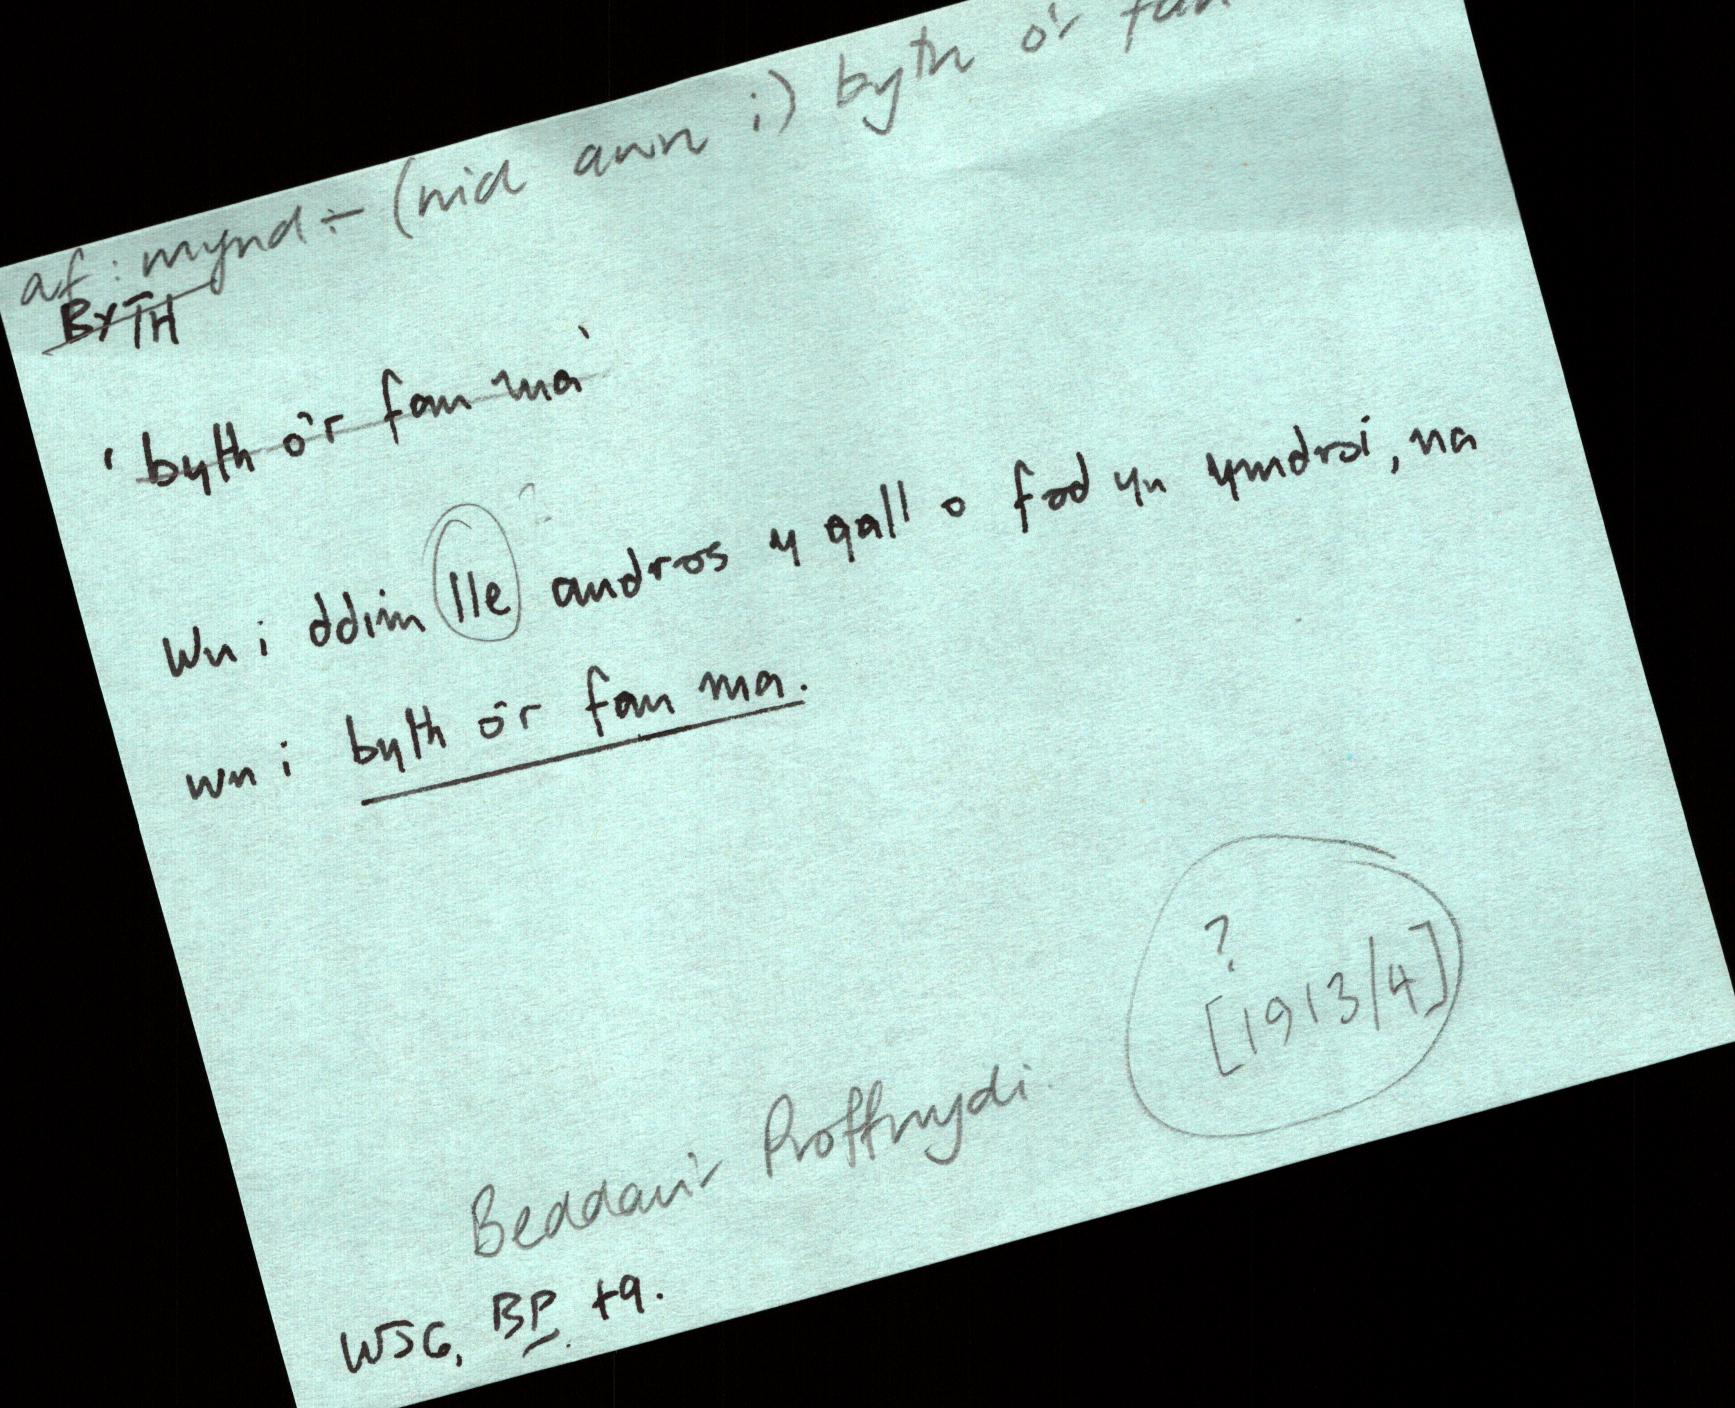 af: mynd ÷ (nid awn i) byth o'r fan
BYTH
'byth o'r fan ma'
Wn i ddim lle andros y gall o fod yn ymdroi, na
wn i byth o'r fan ma.
?
[1913/4]
Beddau'r Proffwydi.
WJG, BP t9.